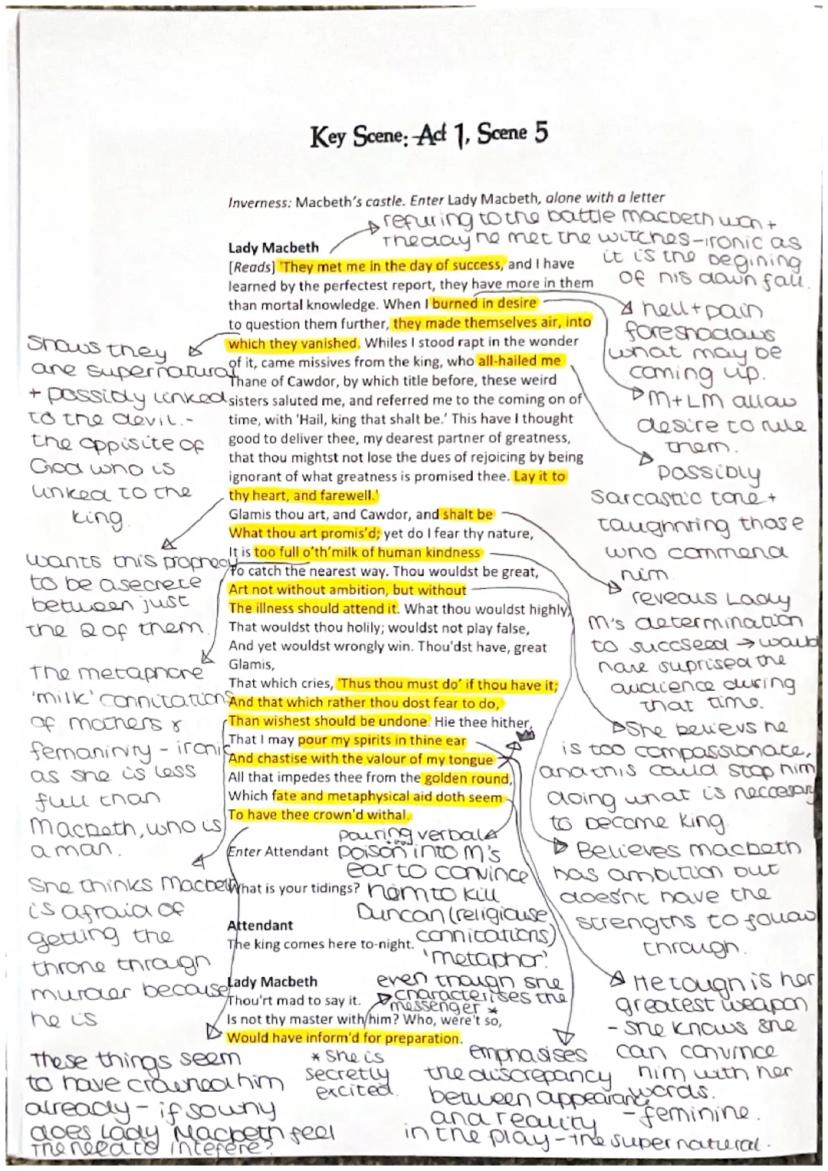 Key Scene: Act 1, Scene 5
Inverness: Macbeth's castle. Enter Lady Macbeth, alone with a letter
refuring to the battle macbeth won +
the day he met the witches - ironic as
it is the begining
of his down fall.
Lady Macbeth
[Reads] 'They met me in the day of success, and I have
learned by the perfectest report, they have more in them
than mortal knowledge. When I burned in desire
to question them further, they made themselves air, into
which they vanished. Whiles I stood rapt in the wonder
of it, came missives from the king, who all-hailed me
Thane of Cawdor, by which title before, these weird
sisters saluted me, and referred me to the coming on of
time, with 'Hail, king that shalt be.' This have I thought
good to deliver thee, my dearest partner of greatness,
that thou mightst not lose the dues of rejoicing by being
ignorant of what greatness is promised thee. Lay it to
thy heart, and farewell.'
Glamis thou art, and Cawdor, and shalt be
What thou art promis'd; yet do I fear thy nature,
It is too full o'th'milk of human kindness
To catch the nearest way. Thou wouldst be great,
Art not without ambition, but without
The illness should attend it. What thou wouldst highly,
That wouldst thou holily; wouldst not play false,
And yet wouldst wrongly win. Thou'dst have, great
Glamis,
That which cries, 'Thus thou must do' if thou have it;
And that which rather thou dost fear to do,
Than wishest should be undone. Hie thee hither,
That I may pour my spirits in thine ear
And chastise with the valour of my tongue
All that impedes thee from the golden round,
Which fate and metaphysical aid doth seem
To have thee crown'd withal.
Enter Attendant
What is your tidings?
Attendant
The king comes here to-night.
Lady Macbeth
Thou'rt mad to say it.
Is not thy master with him? Who, were't so,
Would have inform'd for preparation.
Shows they
are supernatural
+ possibly linked
to the devil. -
the oppisite of
God who is
linked to the
king.
wants this prophecy
to be a secrete
between just
the 2 of them.
The metaphore
'milk' connitations
of mothers &
femaninity - ironic
as she is less
full than
Macbeth, who is
a man.
She thinks Macbeth
is afraid of
getting the
throne through
murder because
he is
These things seem
to have crowned him
already - if so why
does Lady Macbeth feel
the need to intefere?
hell + pain
foreshadows
what may be
coming up.
M + LM allow
desire to rule
them.
possibly
sarcastic tone +
those
who commend
him.
reveals Lady
M's determination
to succseed → would
have suprised the
audience during
that time.
She believs he
is too compassionate,
and this could stop him
doing what is neccesary
to become king.
Believes macbeth
has ambition but
doesn't have the
strengths to follow
through.
He tough is her
greatest weapon
- she knows she
can convince
him with her
words.
- feminine.
pouring verbal
poison into M's
ear to convince
him to kill
Duncan (religiouse
connitations)
'metaphor'.
even though she
characterises the
messenger *
* she is
secretly
excited.
emphasises
the discrepancy
between appearance
and reality
in the play - the supernatural.